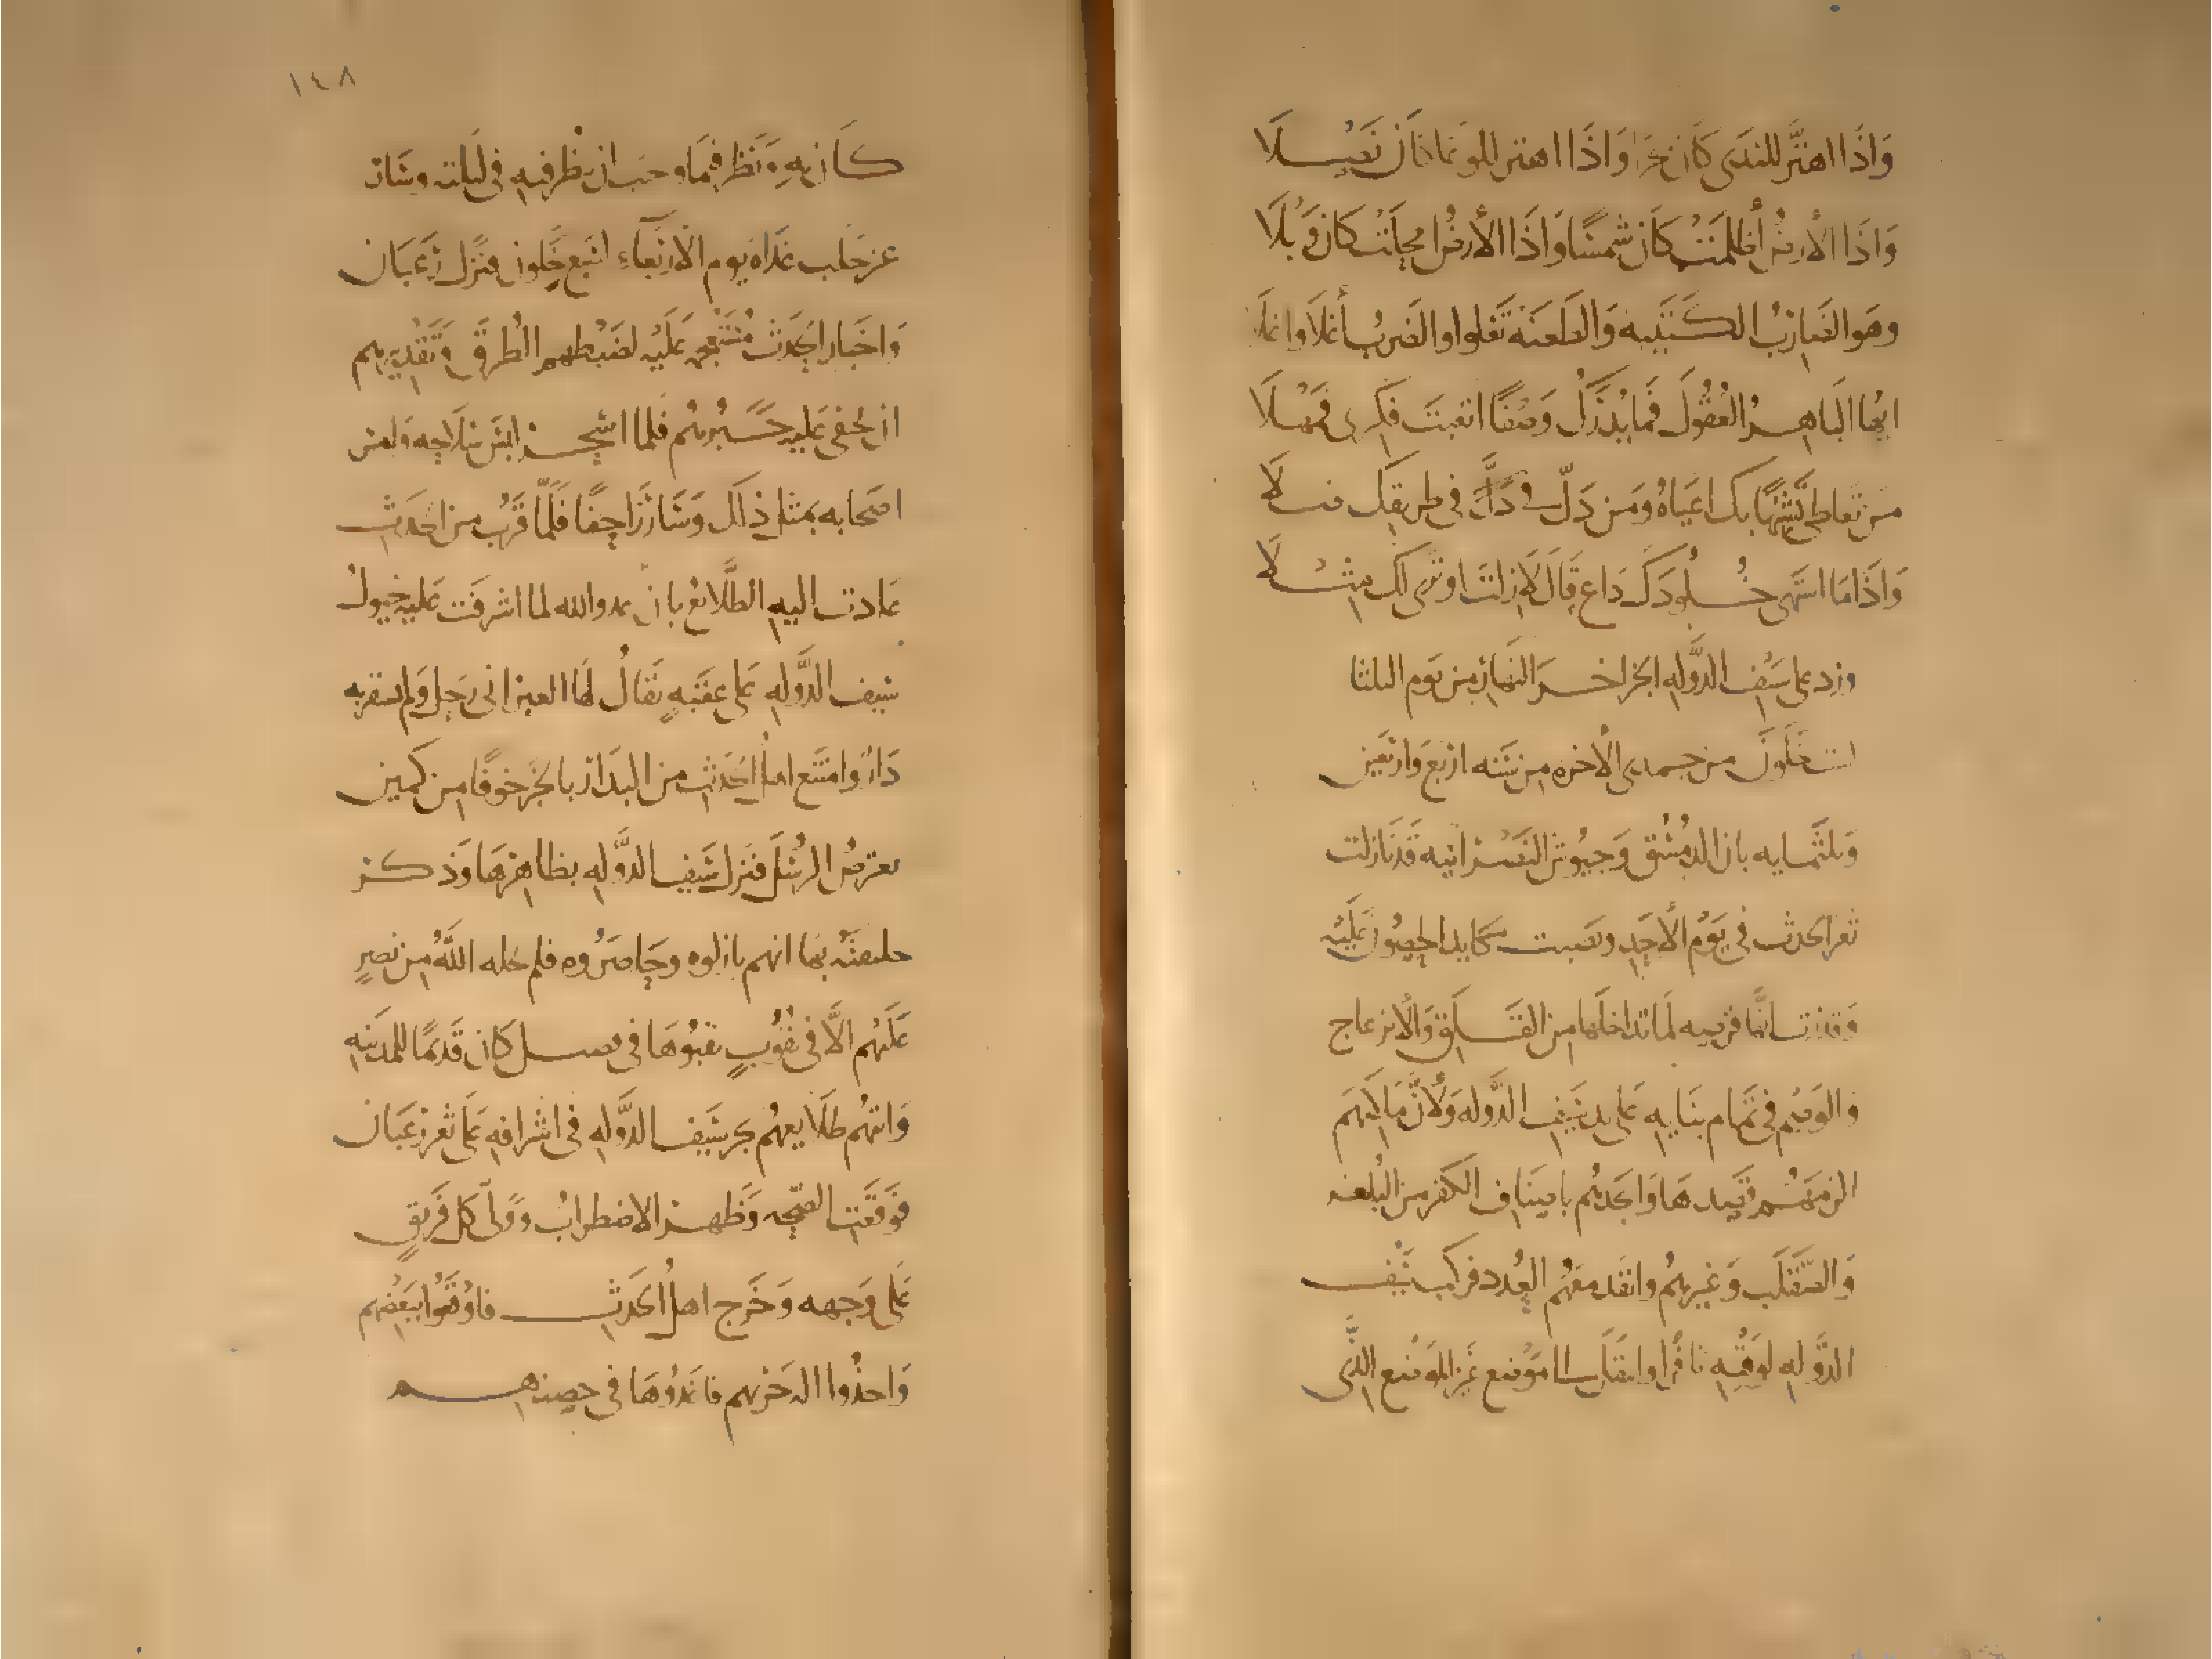 وَاِذَا اهتَزَّ للندَى كَانَ بحرًا وَاِذَا اهتز للوغا كَانَ نَصْلَا
وَاِذَا الأرضُ أظلمَتْ كَانَ شمسًا وَاِذَا الأرضُ امحلَتْ كَانَ وَبْلَا
وهوَ الضَاربُ الكَتيبه وَالطعنَة تَغلوا والضربُ أغلَا واغلَا
ايُّها البَاهرُ العُقُولَ فَما يُدْرَكُ وَصْفًا اتعبتَ فكرى فمَهْلَا
من تعاطى تَشبُّهًا بك اعيَاهُ وَمَن دَلّ فى طريقك ضلَّا
وَاِذَا مَا اشتهى خُلُودَكَ دَاعٍ قَالَ لَا زلتَ او ترى لك مِثْلَا
ورد على سَيْف الدَّوله الخبر اخر النهَار من يَوم الثلثا
لست خَلَونَ من جمدى الأخره من سَنَه اربع وَاربعَين
وَثلثمايه بان الدمُسْتق وَجيُوش النَصْرَانيه قد نَازلت
ثغر الحدث فى يَوْم الأحَدِ ونصبت مكايد الحصُون عَليْه
وَقدرت انَّها فرصه لمَا تداخلَها من القَلَق وَالانزعاج
والوَصْم فى تمَام بنَايه على يد سَيْف الدَّوله وَلأنّ مَالكهم
الزمَهُم قصدهَا وَانجدَهُم باصنَاف الكفر من البُلغر
وَالصَّقلَب وَغيرهُم وانفد معَهُم العُدد فركب سَيْف
الدَّوله لوَقتِه نافرًا وانتقلَ الى موْضع غير الموضع الَّذى
١٤٨
كَانَ به وَنَظر فيمَا وجب ان ينظر فيه فى ليلته وسَار
عن حَلب غدَاة يوم الأربَعاءِ لتسع خَلون فنزل رَعبَان
وَاخبَار الحَدث مُستَعجمه عَلَيْه لضبْطهم الطُرق وَتَقْديرهم
ان يخفى عَليه خَبرهُم فلما اسْحر لبس سلَاحه وَامر
اصحابه بمثل ذلك وَسَار زَاحفًا فَلمَّا قَرُب من الحَدث
عَادت اليه الطَّلَائع بان عدو الله لما اشرفت عَليه خيُولُ
سيف الدَّوله على عقبَةٍ يقَالُ لها العبرانى رَحل وَلم تستقر به
دَارٌ وامتنع اهل الحَدث من البدار بالخبر خوفًا من كمين
يعترضُ الرسُلَ فنزل سَيف الدَّوله بظاهرهَا وَذكر
خليفتُه بها انهم نازلوه وحَاصرُوه فلم يخله اللهُ من نصرٍ
عَلَيْهم الَّا فى نقُوبٍ نقبُوهَا فى فصيل كَان قَديمًا للمدينَه
وَاتتهُم طلَايعهُم بخبر سَيف الدَّوله فى اشرافه عَلَى ثغر رَعبَان
فَوقعَت الصَّيحه وَظهر الاضطرابُ وَوَلَّى كل فَريقٍ
عَلى وَجهه وَخَرج اهلُ الحَدث فاوْقعُوا ببَعضهم
وَاخذُوا اله حَربهم فاعَدُوهَا فى حصنهم